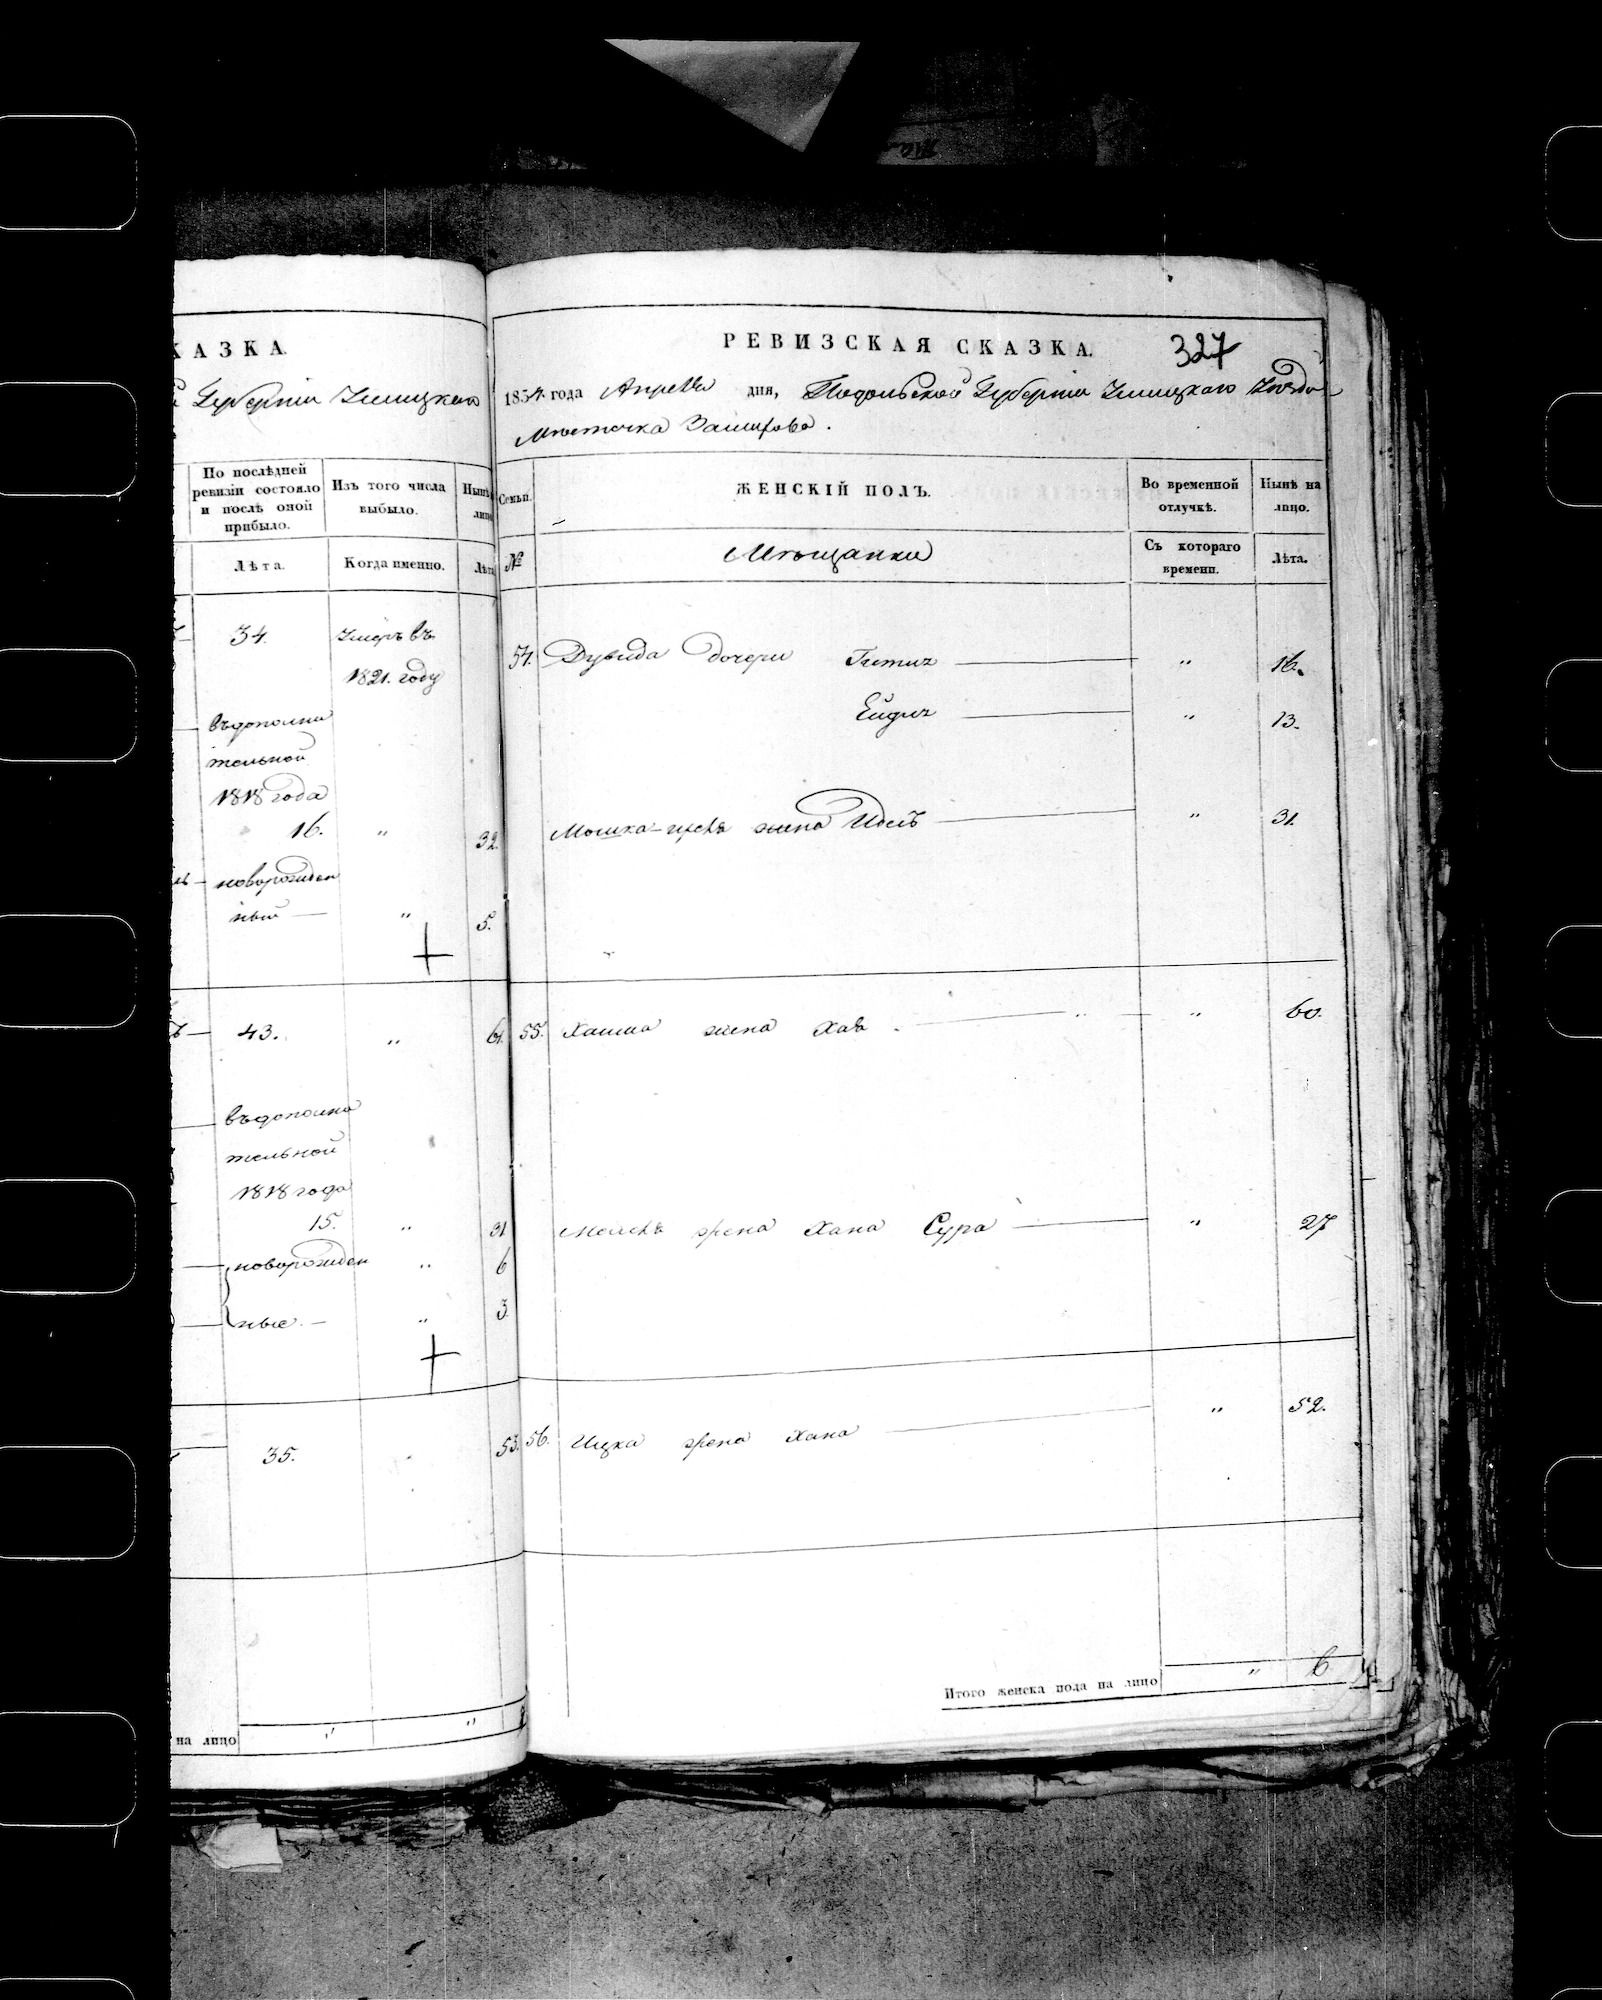 КАЗКА.
Губерніи Ушицкаго
По послѣдней ревизіи состояло и послѣ оной прибыло.
Изъ того числа выбыло.
Лѣта.
Когда именно.
34.
Умеръ въ
1821. году
въдополни
тельной
1818 года
16. " 32.
новорожден
ный — " 5.
43. " 61.
въдополни
тельной
1818 года
15. " 31
новорожден " 6
ные. — " 3.
35. 53.
на лицо " "
РЕВИЗСКАЯ СКАЗКА.
327
1834. года Апреля дня, Подольской Губерніи Ушицкаго Уѣзда
Мѣстечка
Семьи.
ЖЕНСКІЙ ПОЛЪ.
Во временной отлучкѣ.
Нынѣ на лицо.
№
Мѣщанки
Съ котораго времени.
Лѣта.
54. Дувида дочери " 16.
" 13.
Мошка жена " 31.
55. Хаима жена Хая. " " 60.
жена Хана Сура " 27
56. Ицка жена Хана " 52.
Итого женска пола на лицо " 6.